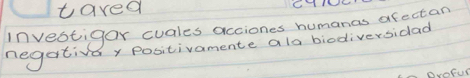 tarea
investigar cuales acciones humanas afectan
negativa y positivamente a la biodiversidad